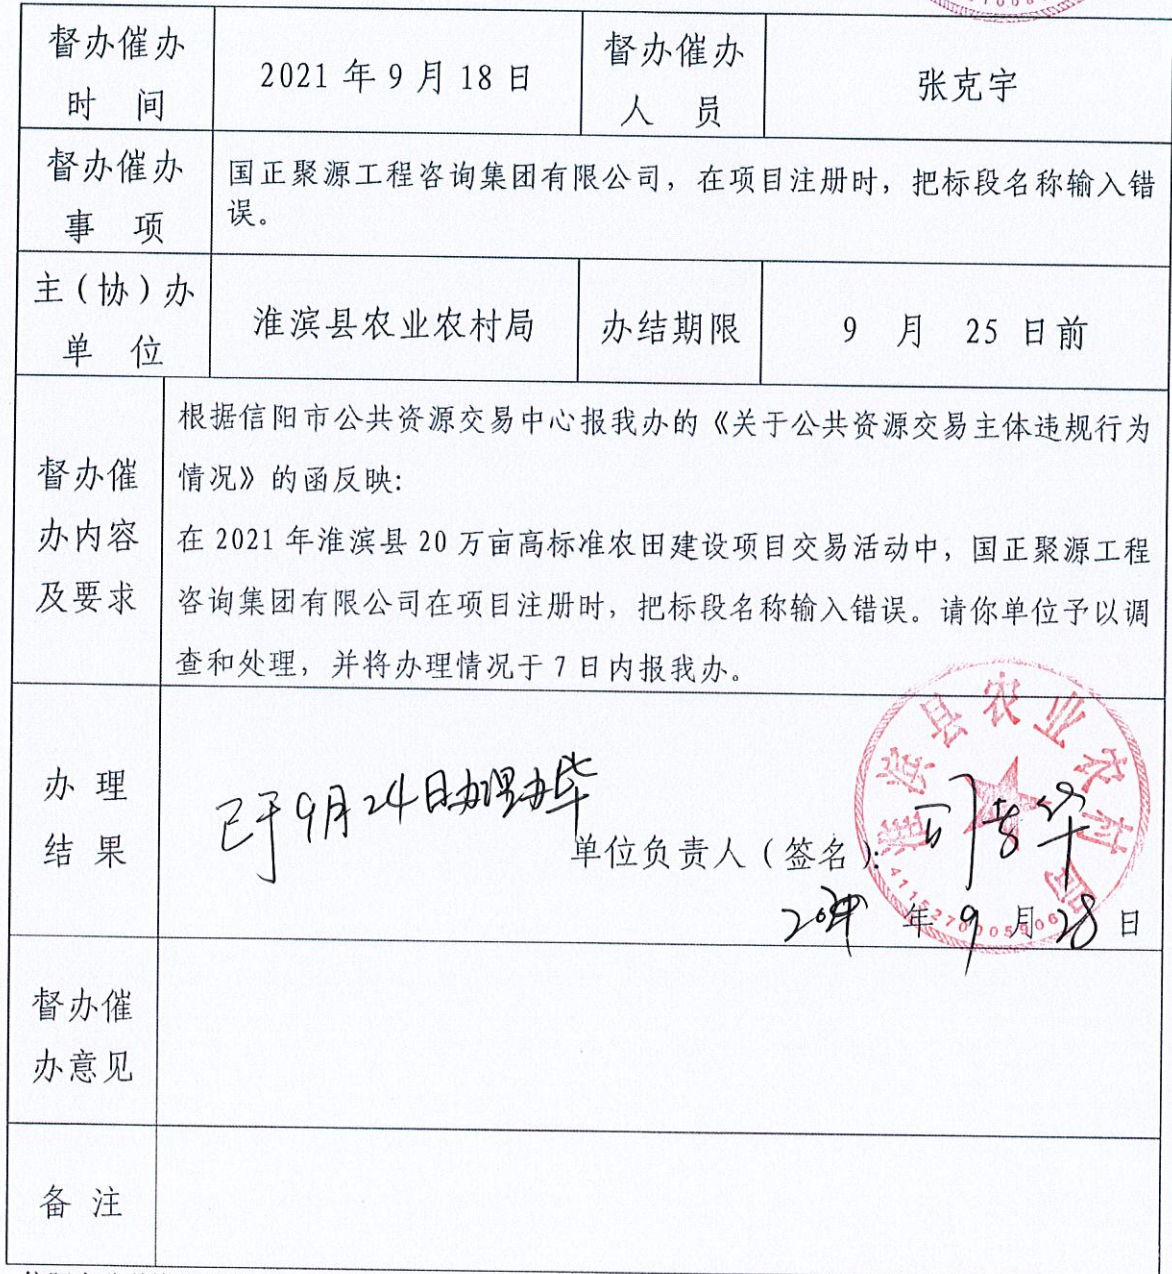 督办催办
时 间
2021 年 9 月 18 日
督办催办
人 员
张克宇
督办催办
事 项
国正聚源工程咨询集团有限公司，在项目注册时，把标段名称输入错
误。
主（协）办
单 位
淮滨县农业农村局
办结期限
9 月 25 日前
督办催
办内容
及要求
根据信阳市公共资源交易中心报我办的《关于公共资源交易主体违规行为
情况》的函反映:
在 2021 年淮滨县 20 万亩高标准农田建设项目交易活动中，国正聚源工程
咨询集团有限公司在项目注册时，把标段名称输入错误。请你单位予以调
查和处理，并将办理情况于 7 日内报我办。
办 理
结 果
已于9月24日办理办毕
单位负责人（签名）:
年 9 月 28 日
淮滨县农业农村局
督办催
办意见
备 注